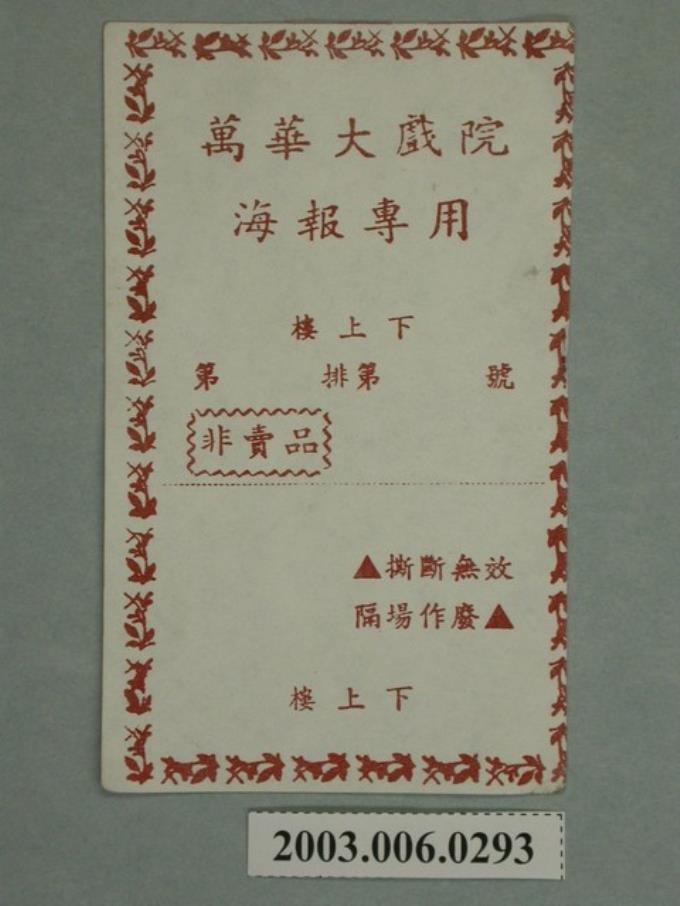 萬華大戲院
海報專用
樓上下
第 排第 號
非賣品
▲撕斷無效
隔場作廢▲
樓上下
2003.006.0293